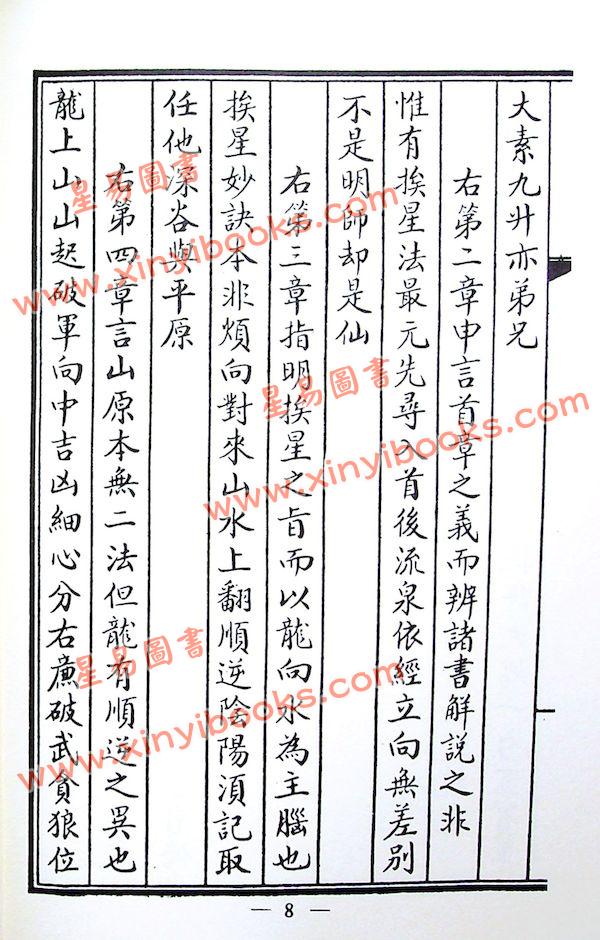 大素九廾亦弟兄
右第二章申言首章之義而辨諸書解說之非
惟有挨星法最元先尋入首後流泉依經立向無差別
不是明師却是仙
右第三章指明挨星之旨而以龍向水為主腦也
挨星妙訣本非煩向對來山水上翻順逆陰陽湏記取
任他深谷與平原
右第四章言山原本無二法但龍有順逆之異也
龍上山山起破軍向中吉凶細心分右㢘破武貪狼位
— 8 —
星易圖書
www.xinyibooks.com
星易圖書
www.xinyibooks.com
星易圖書
www.xinyibooks.com